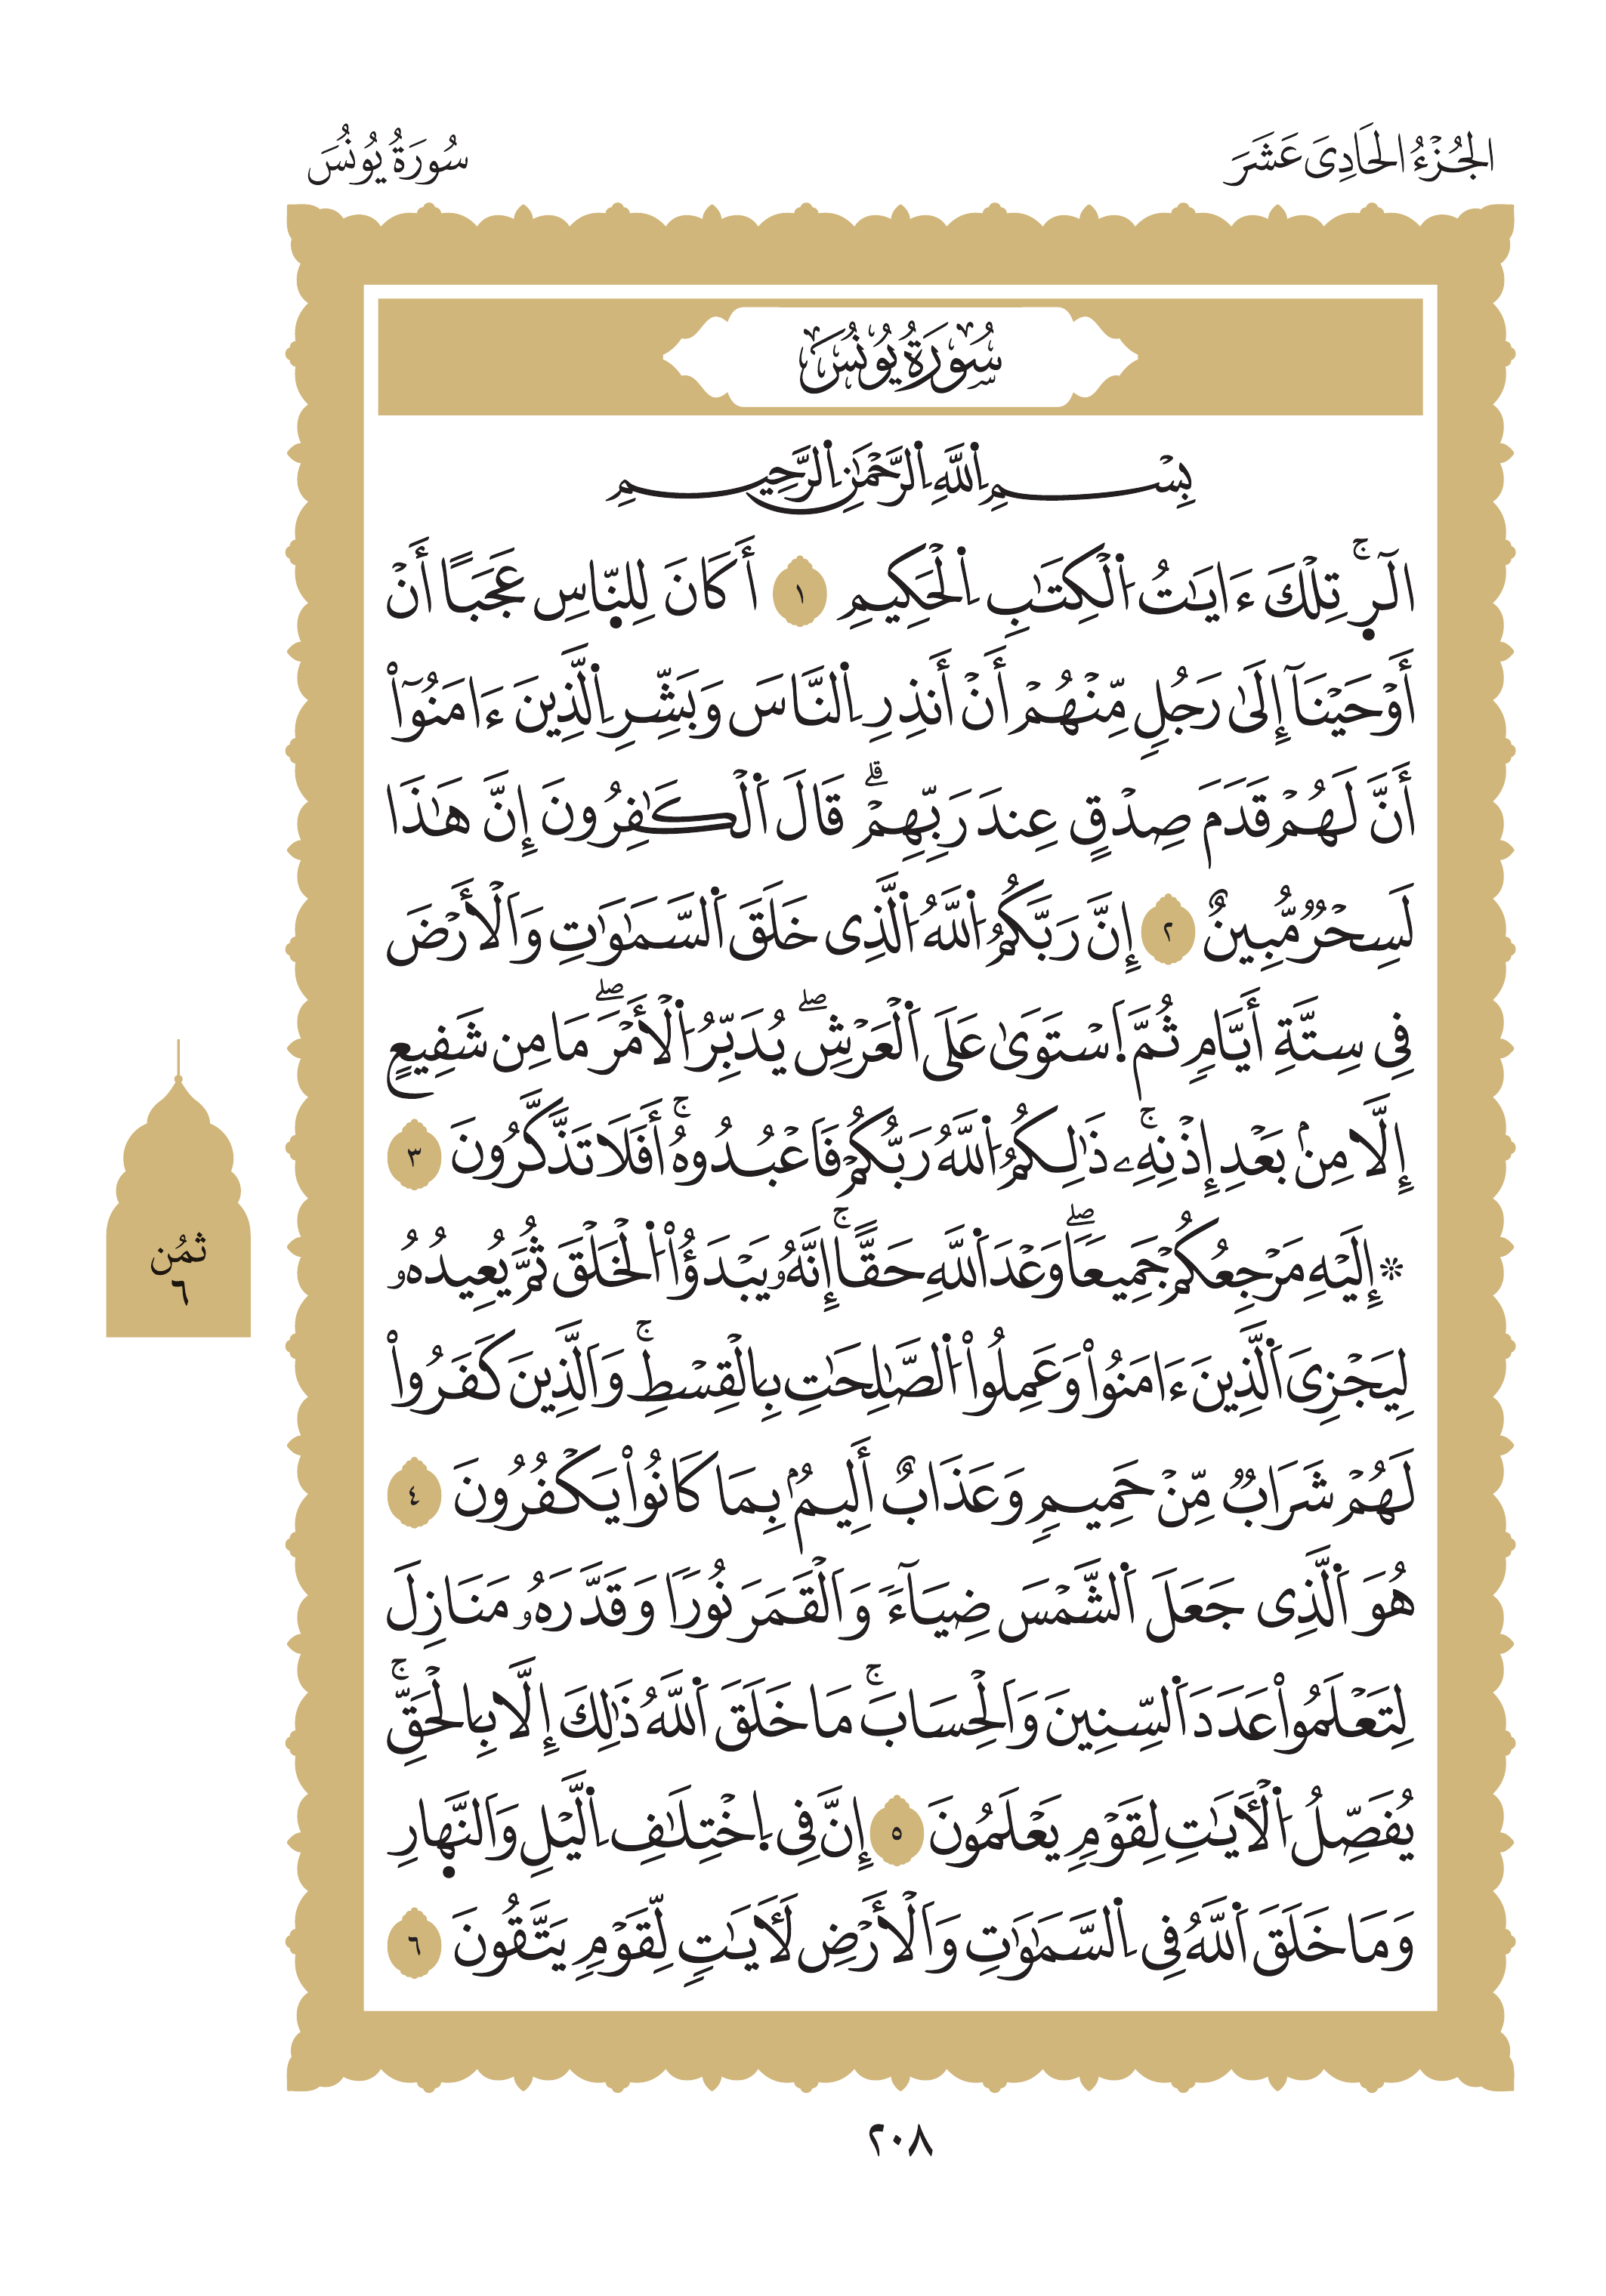 الجُزْءُ الحَادِى عَشَرَ
سُورَةُ يُونُسَ
سُورَةُ يُونُسَ
بِسْمِ اِ۬للَّهِ اِ۬لرَّحْمَٰنِ اِ۬لرَّحِيمِ
الٓر۪ۚ تِلْكَ ءَايَٰتُ اُ۬لْكِتَٰبِ اِ۬لْحَكِيمِ ١ أَكَانَ لِلنّ۪اسِ عَجَبًا أَنْ
أَوْحَيْنَآ إِلَىٰ رَجُلٍ مِّنْهُمْ أَنْ أَنذِرِ اِ۬لنَّاسَ وَبَشِّرِ اِ۬لَّذِينَ ءَامَنُوٓاْ
أَنَّ لَهُمْ قَدَمَ صِدْقٍ عِندَ رَبِّهِمْۗ قَالَ اَ۬لْكَٰفِرُونَ إِنَّ هَٰذَا
لَسِحْرٌ مُّبِينٌ ٢ إِنَّ رَبَّكُمُ اُ۬للَّهُ اُ۬لَّذِى خَلَقَ اَ۬لسَّمَٰوَٰتِ وَاَلْأَرْضَ
فِى سِتَّةِ أَيَّامٍ ثُمَّ اَ۪سْتَوَىٰ عَلَى اَ۬لْعَرْشِۖ يُدَبِّرُ اُ۬لْأَمْرَۖ مَا مِن شَفِيعٍ
إِلَّا مِنۢ بَعْدِ إِذْنِهِۦۚ ذَٰلِكُمُ اُ۬للَّهُ رَبُّكُمْ فَاَعْبُدُوهُۚ أَفَلَا تَذَّكَّرُونَ ٣
۞ إِلَيْهِ مَرْجِعُكُمْ جَمِيعًاۖ وَعْدَ اَ۬للَّهِ حَقًّاۚ إِنَّهُۥ يَبْدَؤُاْ اُ۬لْخَلْقَ ثُمَّ يُعِيدُهُۥ
لِيَجْزِىَ اَ۬لَّذِينَ ءَامَنُواْ وَعَمِلُواْ اُ۬لصَّٰلِحَٰتِ بِالْقِسْطِۚ وَاَلَّذِينَ كَفَرُواْ
لَهُمْ شَرَابٌ مِّنْ حَمِيمٍ وَعَذَابٌ أَلِيمُۢ بِمَا كَانُواْ يَكْفُرُونَ ٤
هُوَ اَ۬لَّذِى جَعَلَ اَ۬لشَّمْسَ ضِيَآءً وَاَلْقَمَرَ نُورًا وَقَدَّرَهُۥ مَنَازِلَ
لِتَعْلَمُواْ عَدَدَ اَ۬لسِّنِينَ وَاَلْحِسَابَۚ مَا خَلَقَ اَ۬للَّهُ ذَٰلِكَ إِلَّا بِالْحَقِّۚ
يُفَصِّلُ اُ۬لْأٓيَٰتِ لِقَوْمٍ يَعْلَمُونَ ٥ إِنَّ فِى اِ۪خْتِلَٰفِ اِ۬لَّيْلِ وَاَلنَّه۪ارِ
وَمَا خَلَقَ اَ۬للَّهُ فِى اِ۬لسَّمَٰوَٰتِ وَاَلْأَرْضِ لَأٓيَٰتٍ لِّقَوْمٍ يَتَّقُونَ ٦
ثمُن
٦
٢٠٨